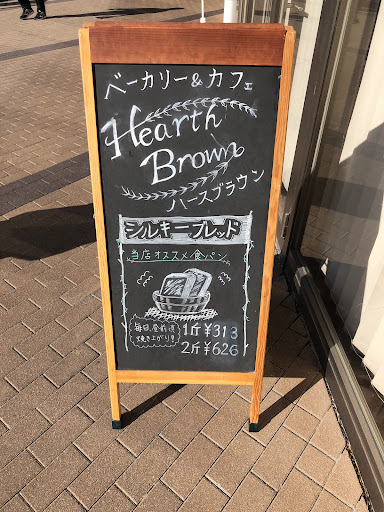 ベーカリー&カフェ
Hearth
Brown
ハースブラウン
シルキーブレッド
当店オススメ食パン
毎日、昼前頃
焼き上がり!!
1斤¥313
2斤¥626